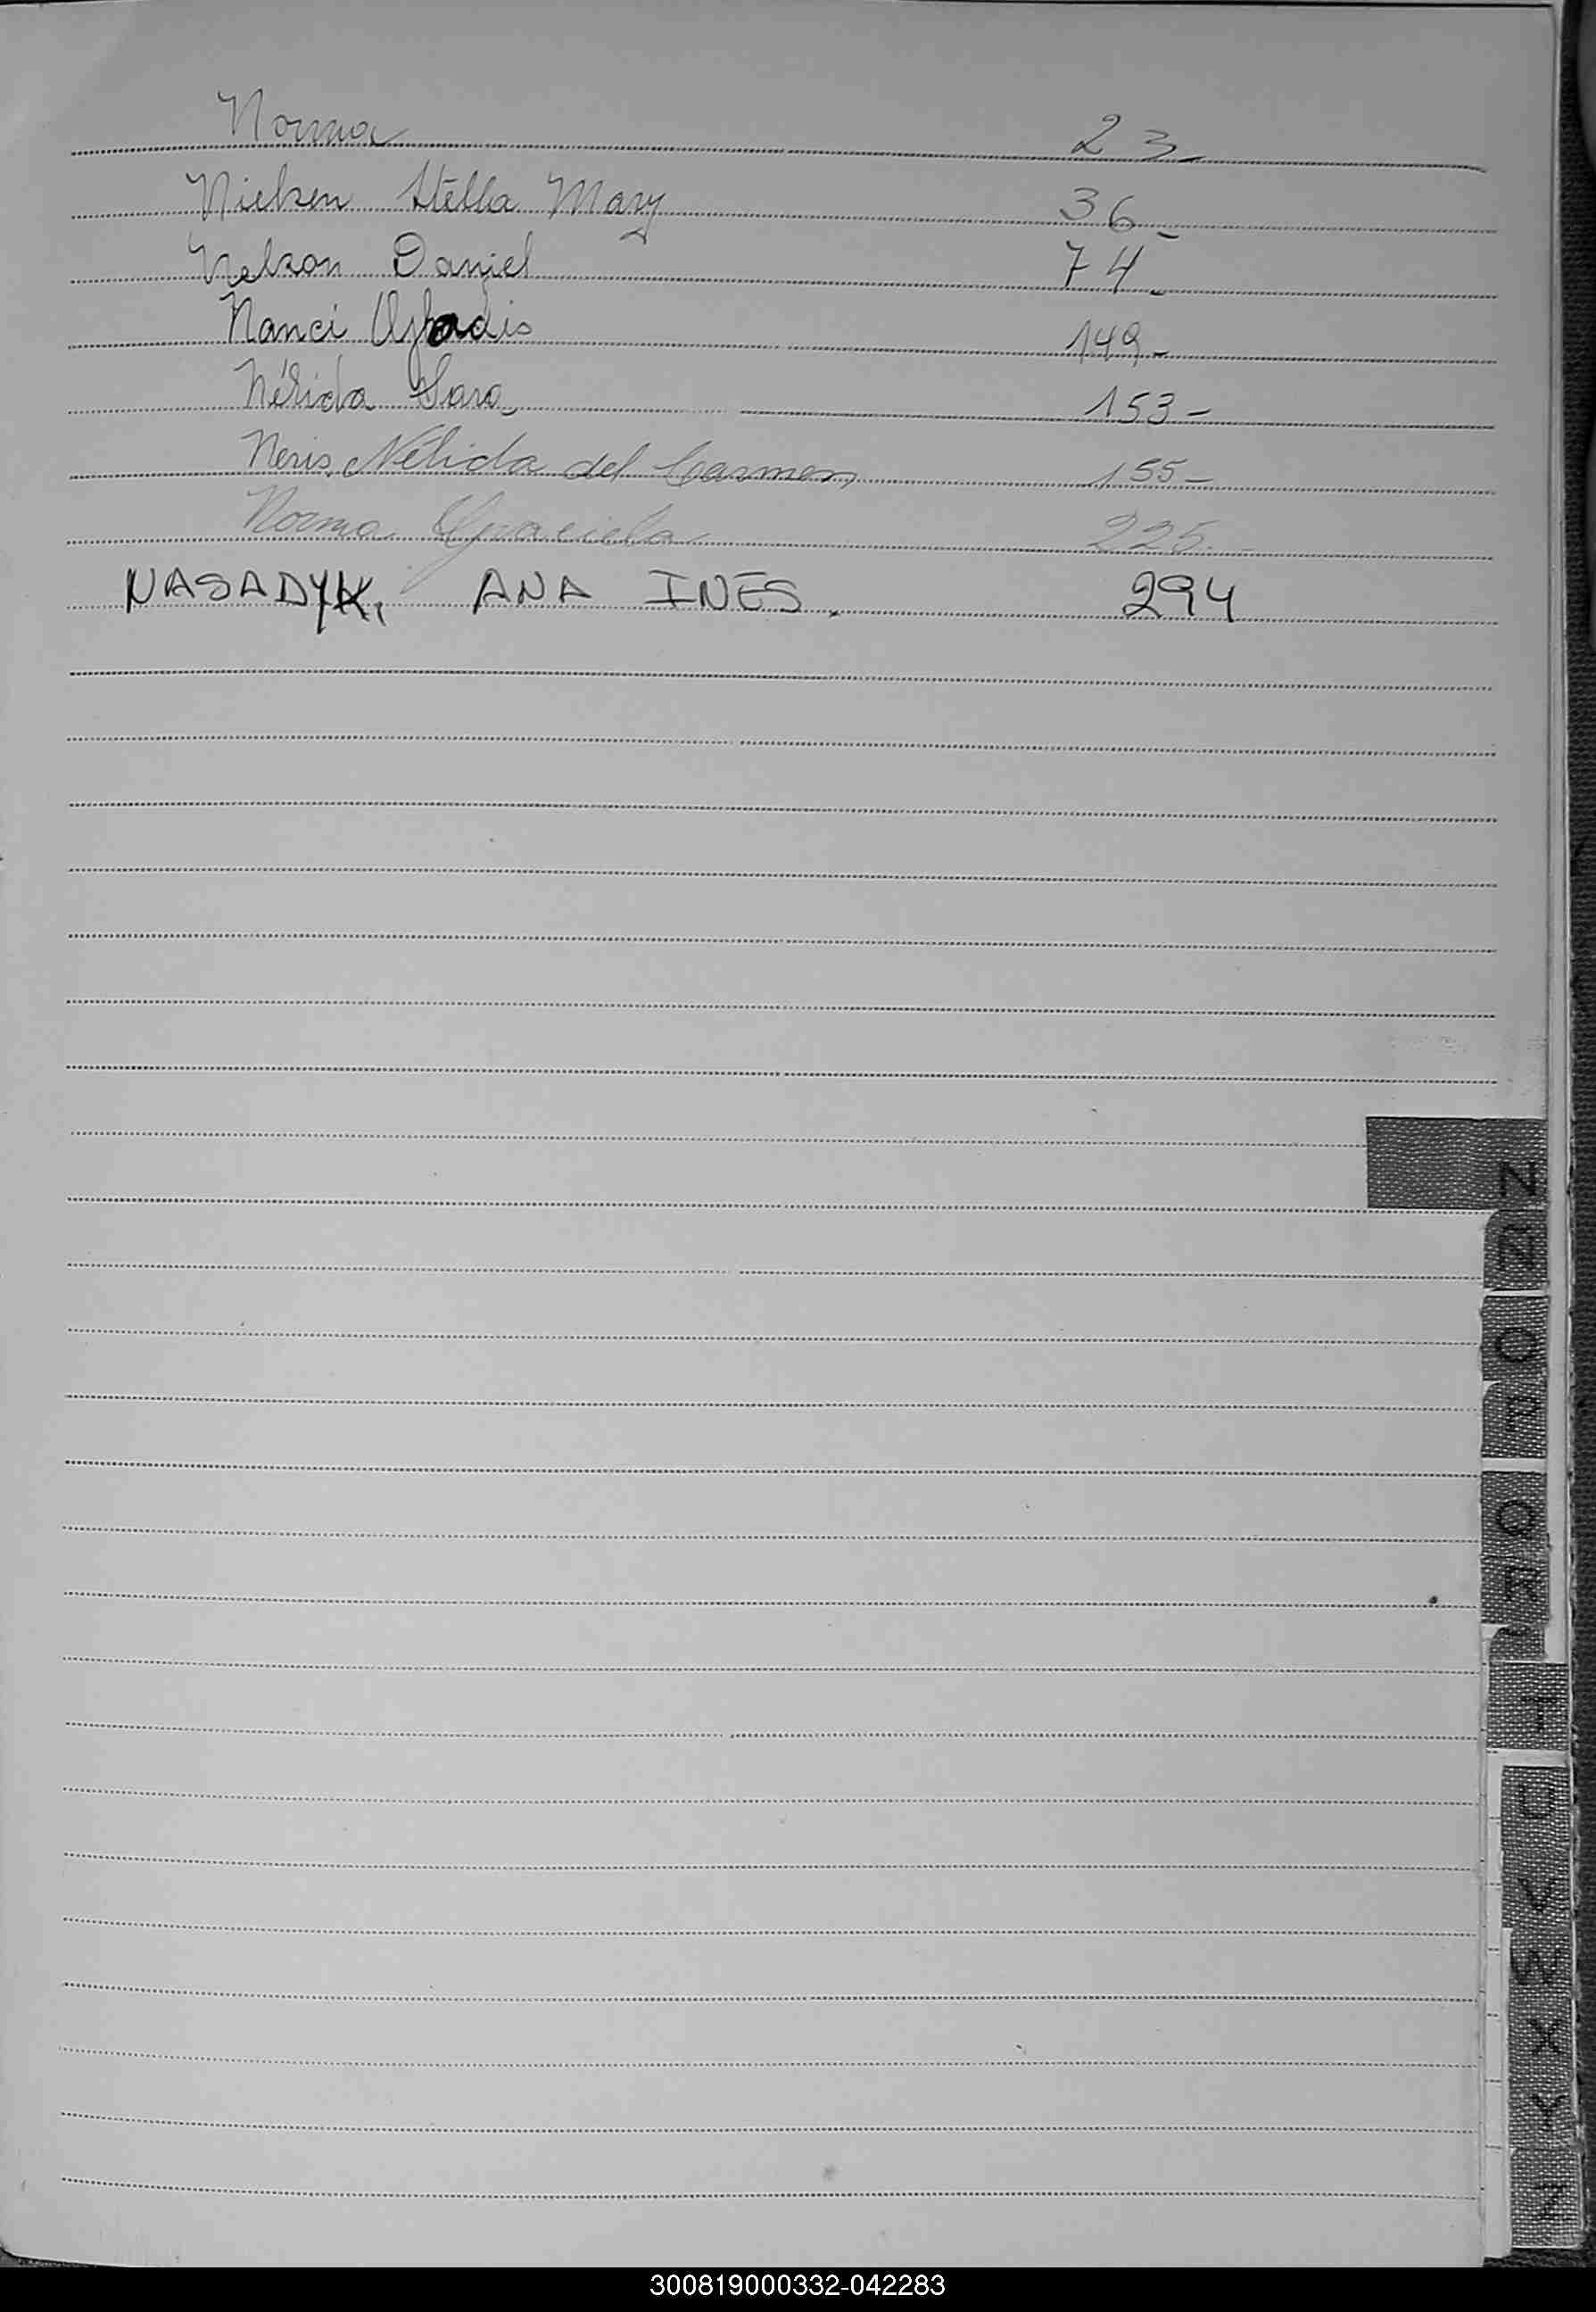 Norma 23-
Nielsen Stella Mary 36-
Nelson Daniel 74-
Nanci 149-
Nélida Sara 153-
Neris, Nélida del Carmen 155-
Norma Graciela 225.-
NASADYK, ANA INES. 294
N
Ñ
O
P
Q
R
T
U
V
W
X
Y
Z
300819000332-042283